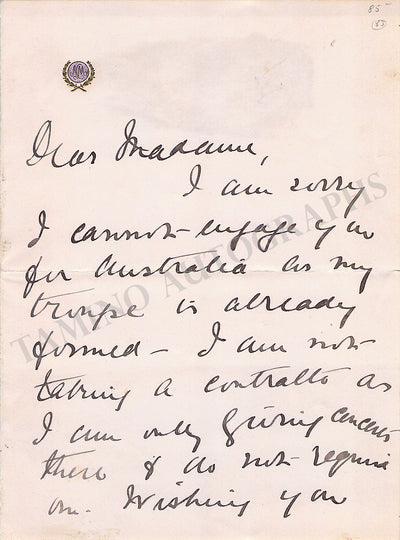 85
(83)
Dear Madame,
I am sorry
I cannot engage you
for Australia as my
troupe is already
formed - I am not
taking a contralto as
I am only giving concerts
there & do not require
one. Wishing you
TAMINO AUTOGRAPHS